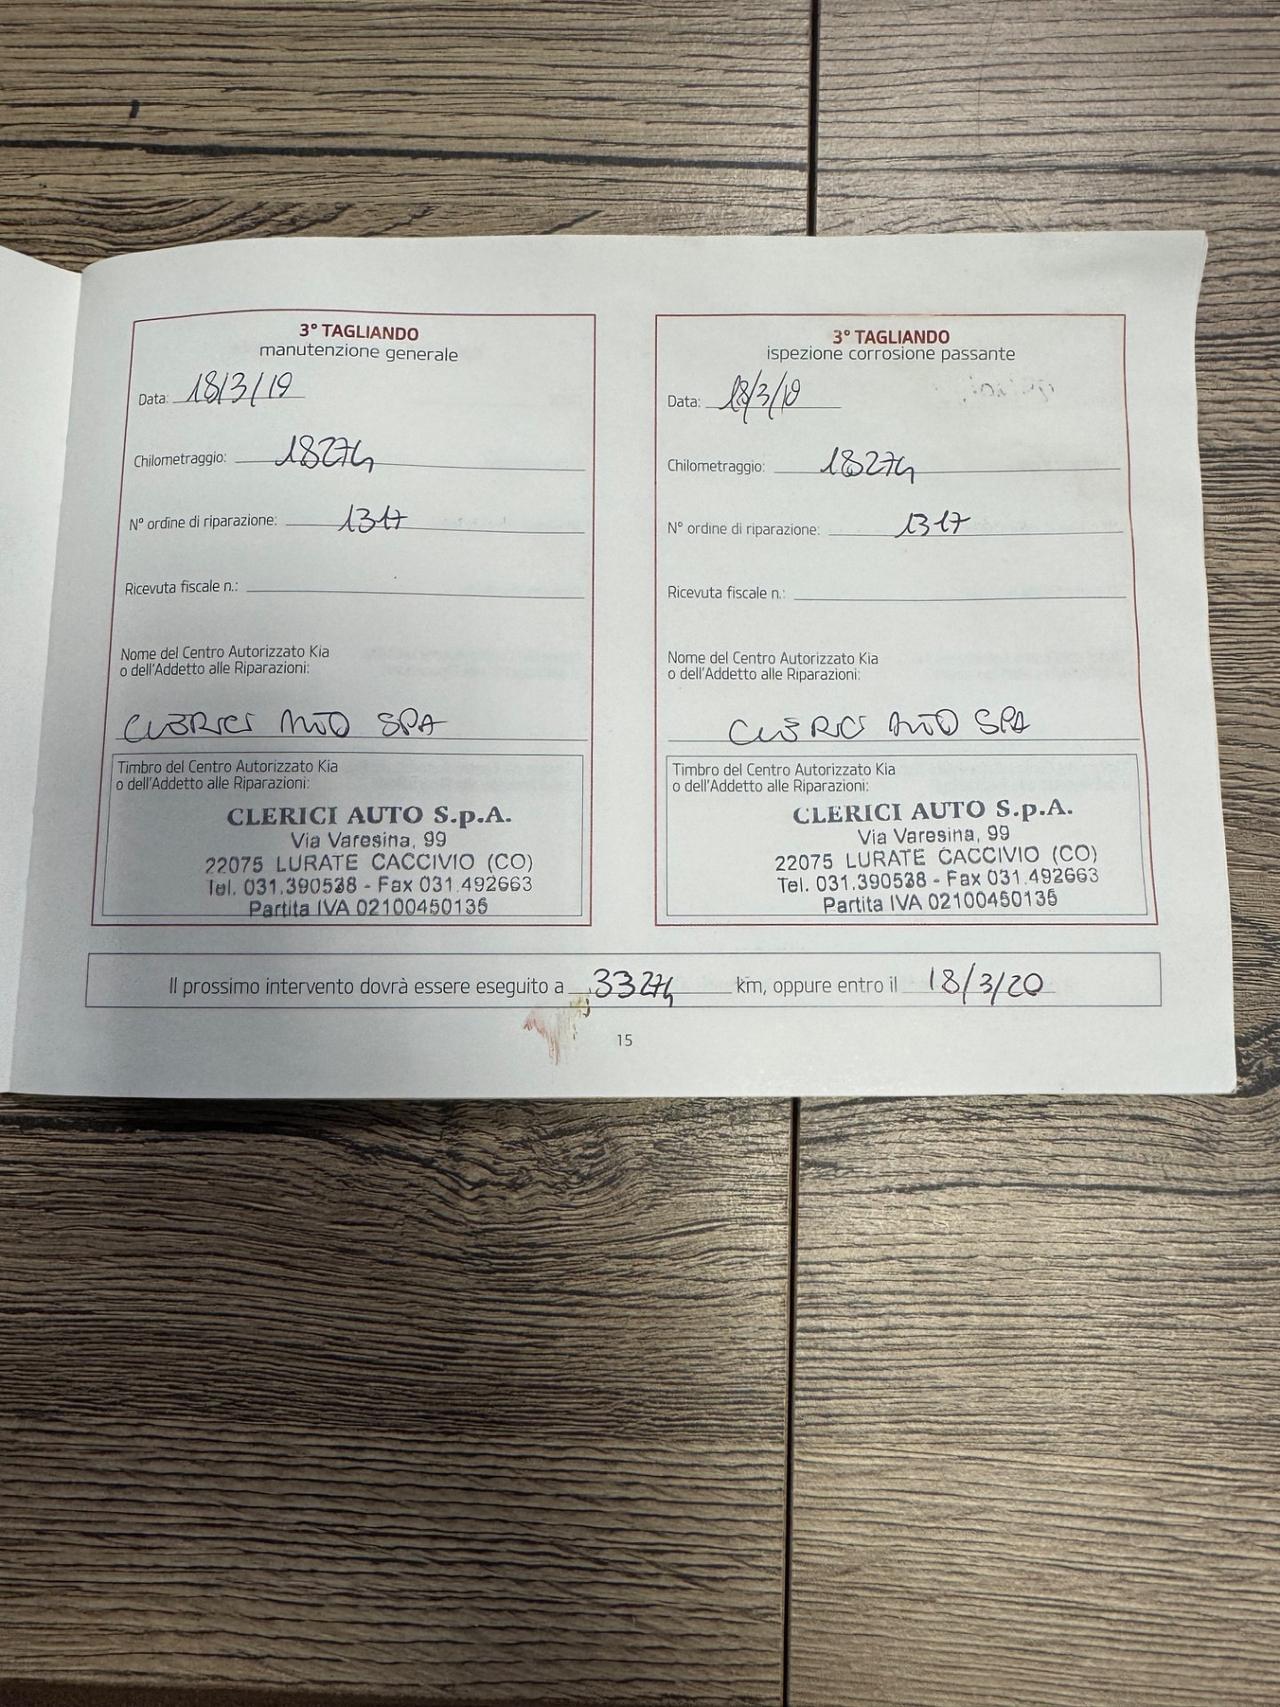 3° TAGLIANDO
manutenzione generale
Data: 18/3/19
Chilometraggio: 18274
N° ordine di riparazione: 1317
Ricevuta fiscale n.:
Nome del Centro Autorizzato Kia
o dell'Addetto alle Riparazioni:
CLERICI AUTO SPA
Timbro del Centro Autorizzato Kia
o dell'Addetto alle Riparazioni:
CLERICI AUTO S.p.A.
Via Varesina, 99
22075 LURATE CACCIVIO (CO)
Tel. 031.390538 - Fax 031.492663
Partita IVA 02100450135
3° TAGLIANDO
ispezione corrosione passante
Data: 18/3/19
Chilometraggio: 18274
N° ordine di riparazione: 1317
Ricevuta fiscale n.:
Nome del Centro Autorizzato Kia
o dell'Addetto alle Riparazioni:
CLERICI AUTO SPA
Timbro del Centro Autorizzato Kia
o dell'Addetto alle Riparazioni:
CLERICI AUTO S.p.A.
Via Varesina, 99
22075 LURATE CACCIVIO (CO)
Tel. 031.390538 - Fax 031.492663
Partita IVA 02100450135
Il prossimo intervento dovrà essere eseguito a 33274 km, oppure entro il 18/3/20
15